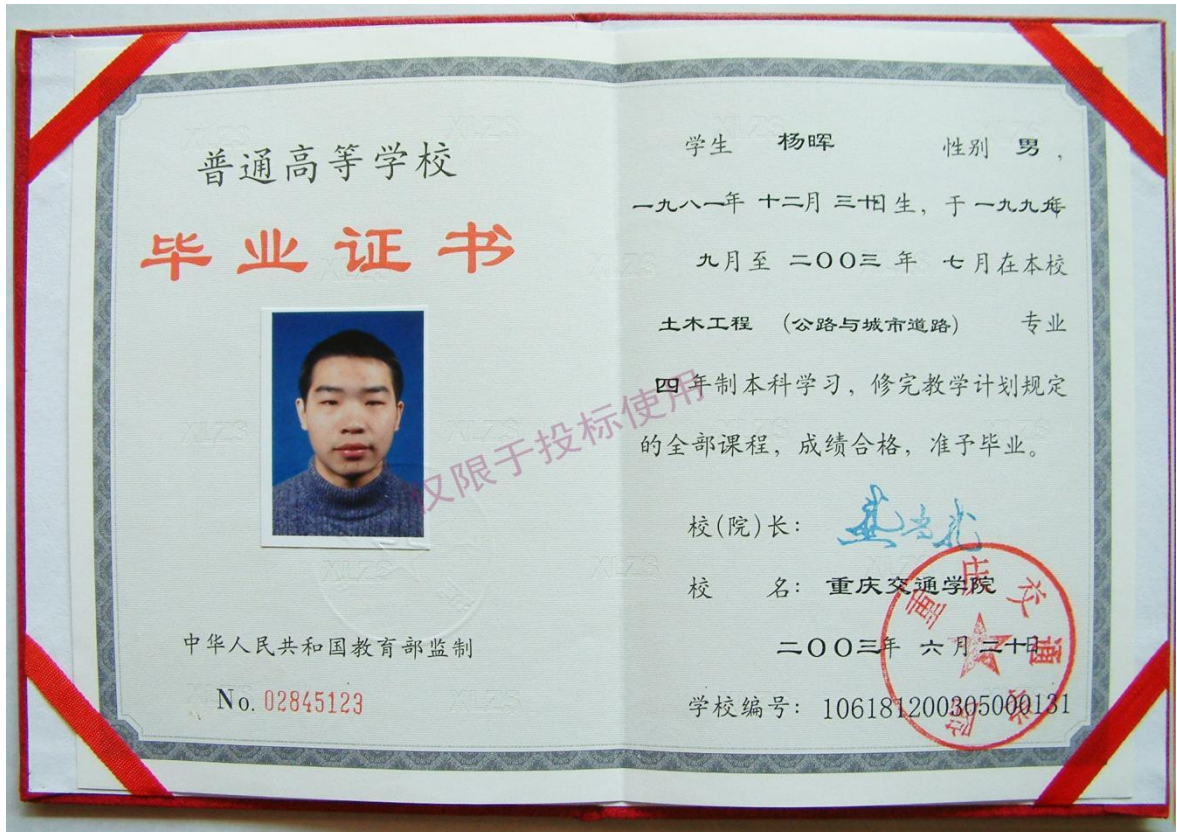 普通高等学校
毕业证书
中华人民共和国教育部监制
No. 02845123
学生 杨晖 性别 男，
一九八一年 十二月 三十日生，于一九九九年
九月至 二〇〇三 年 七月在本校
土木工程 （公路与城市道路） 专业
四年制本科学习，修完教学计划规定
的全部课程，成绩合格，准予毕业。
校(院)长：
校 名：重庆交通学院
二〇〇三年 六月二十日
学校编号：106181200305000131
重庆交通学院
仅限于投标使用
XLZS